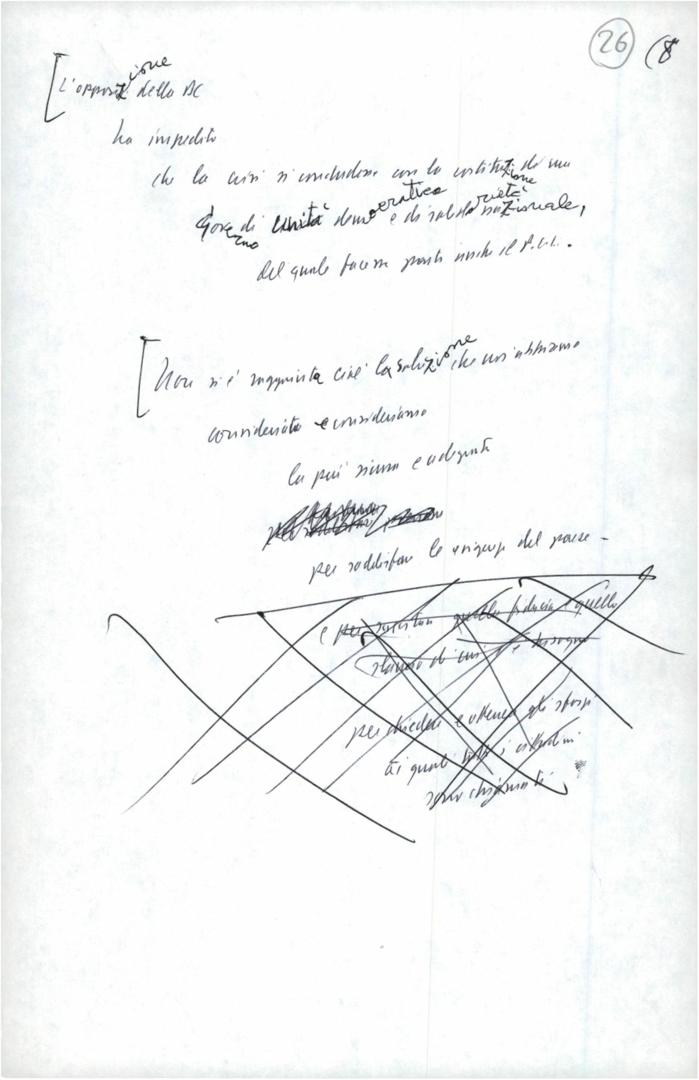 26 (8
[L'opposizione della DC
ha impedito
che la crisi si concludesse con la costituzione di un
governo di unità democratica e di solidarietà nazionale,
del quale facesse parte anche il P.C.I..
[Non si è raggiunta cioè la soluzione che noi abbiamo
considerato e consideriamo
la più sicura e adeguata
per soddisfare le esigenze del paese -
e per suscitare quella fiducia e quello
slancio di cui c'è bisogno
per chiedere e ottenere gli sforzi
ai quali tutti i cittadini
sono chiamati